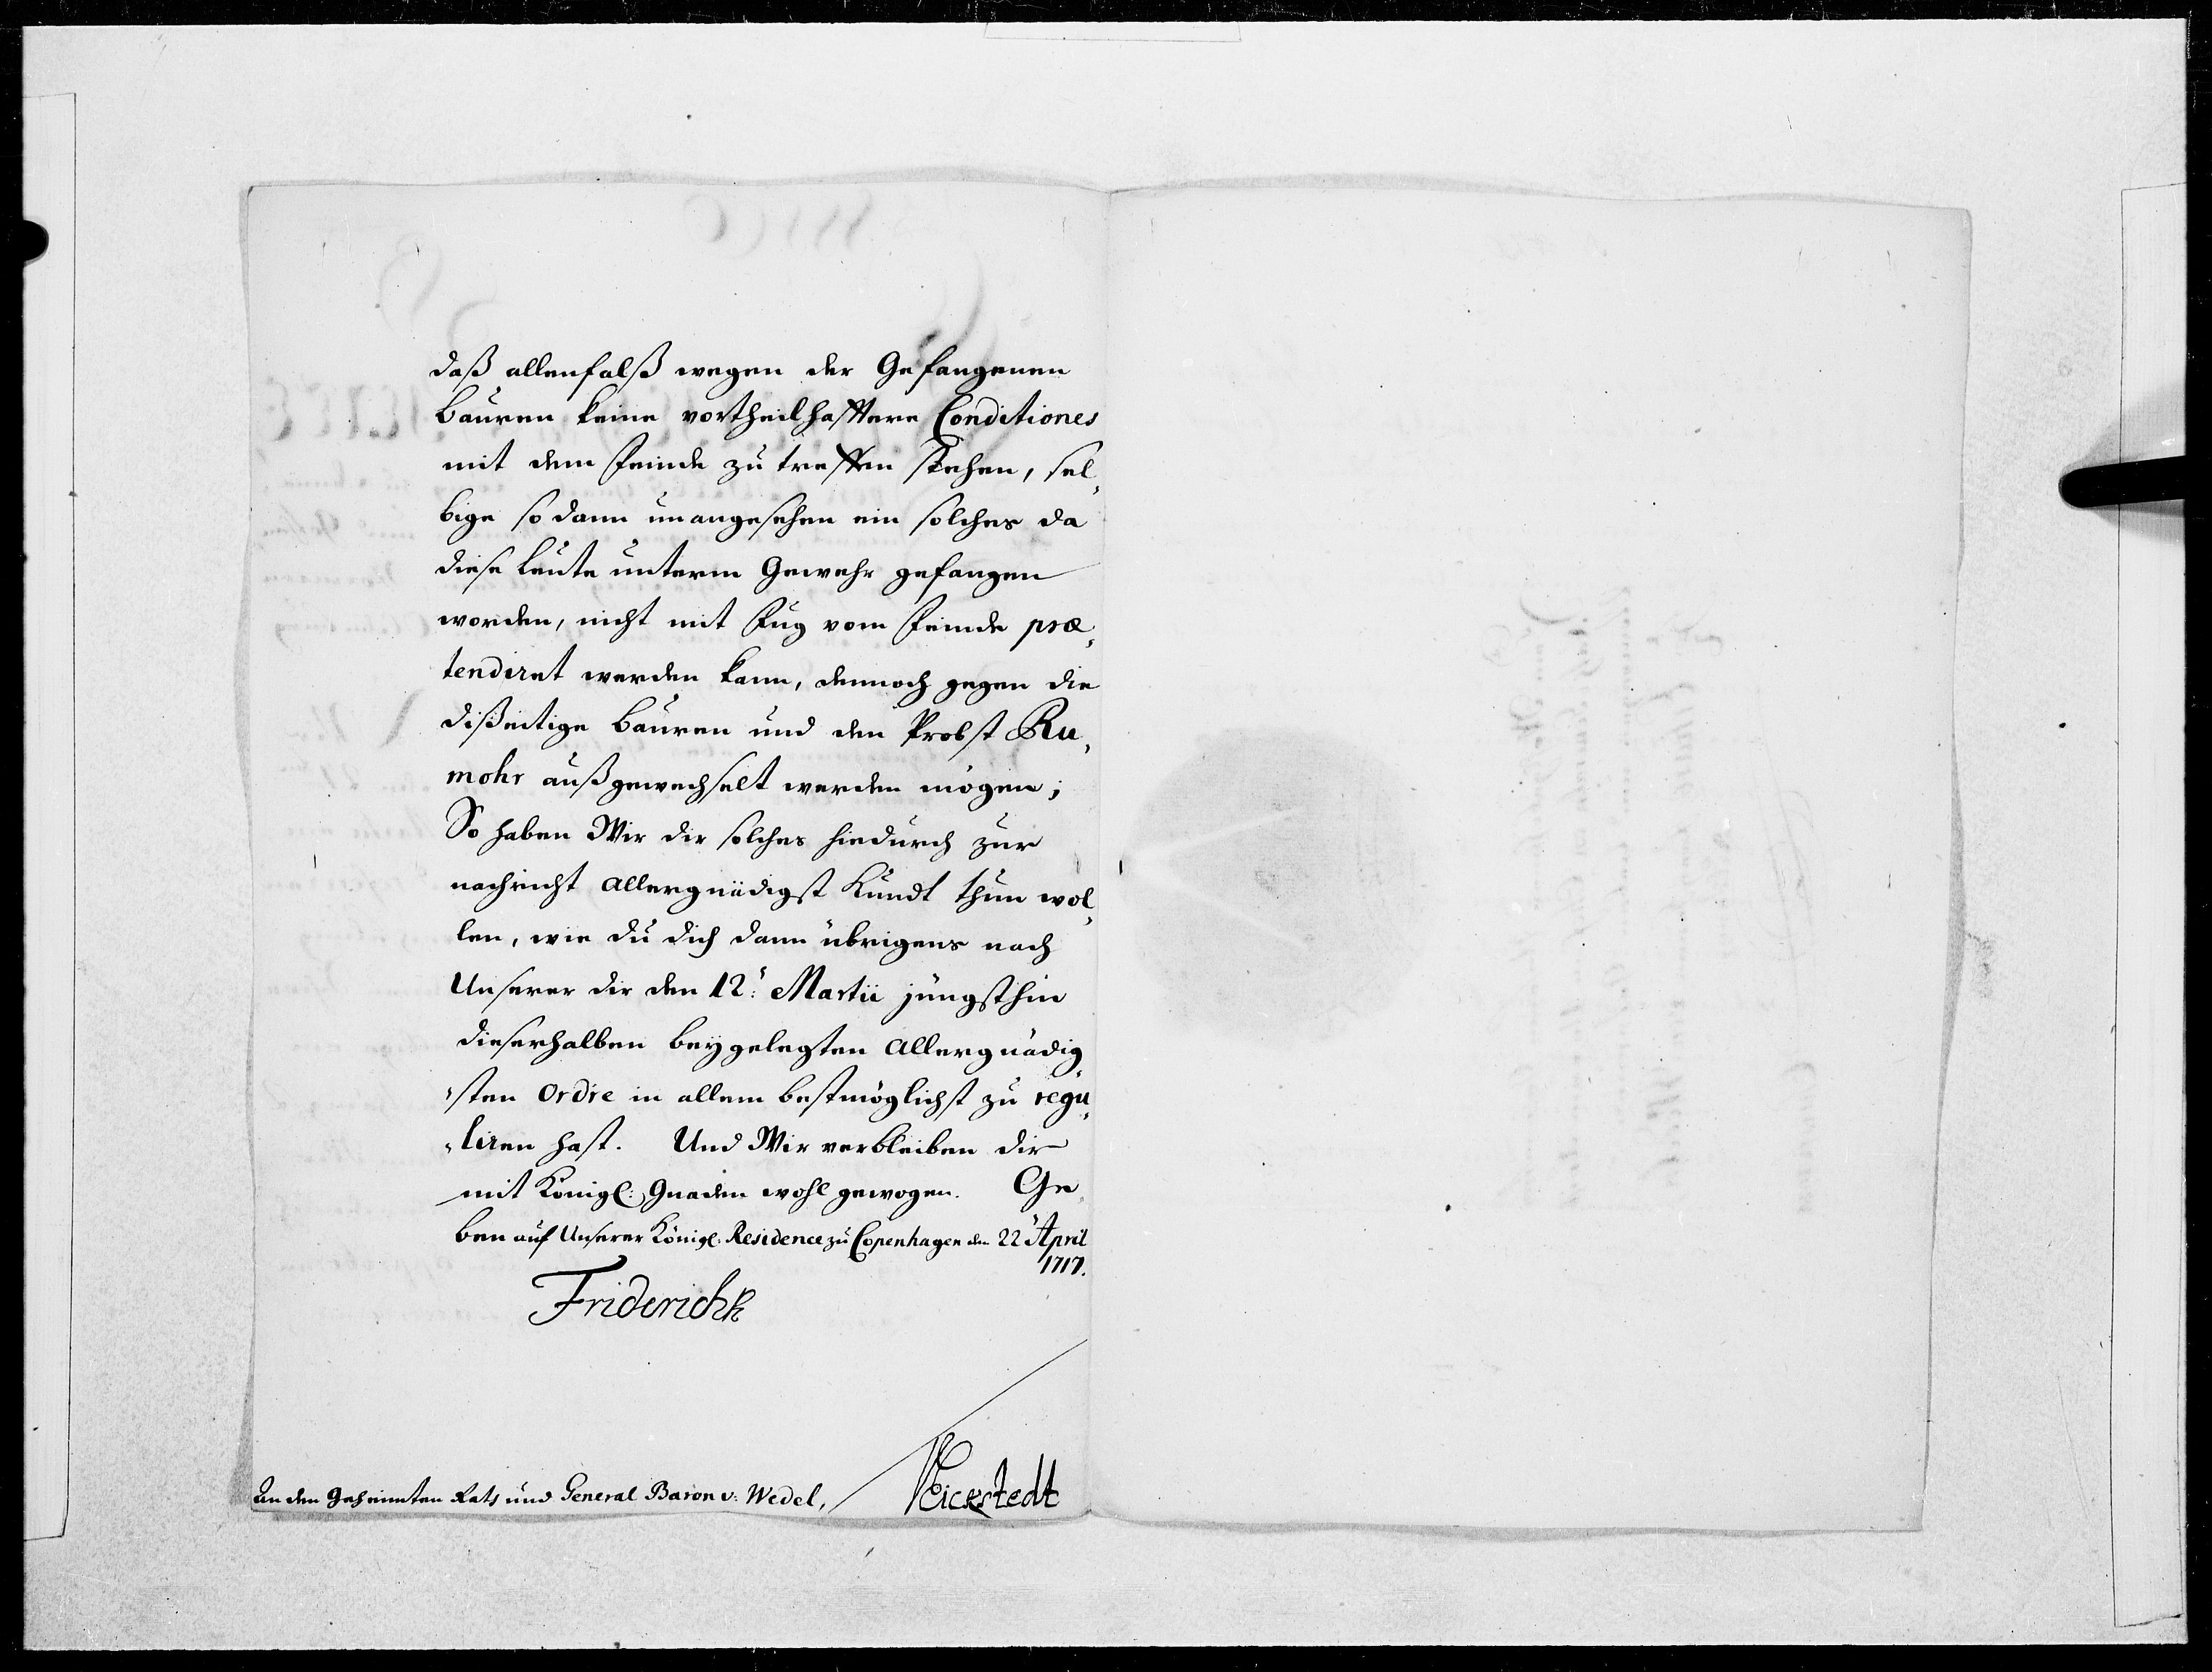 daß allenfalß wegen der Gefangenen
bauren keine vortheilhafftere Conditiones
mit dem Feinde zu treffen stehen, sel„
bige so dann unangesehen ein solches da
diese Leute unterm Gewehr gefangen
worden, nicht mit Fug vom Feinde præ„
tendiret werden kann, dennoch gegen die
dißeitige bauren und den Probst Ru„
mohr außgewechselt werden mögen;
So haben Wir dir solches hiedurch zur
nachricht allergnädigst Kundt thun wol„
len, wie du dich dann übrigens nach
Unserer dir den 12: Martii jüngsthin
dieserhalben beygelegten allergnädig„
„sten Ordre in allem bestmöglichst zu regu„
„liren hast. Und Wir verbleiben dir
mit Königl: Gnaden wohl gewogen. Ge„
ben auf Unserer Königl: Residence zu Copenhagen den 22 April
1717.
Friderich R
An den Geheimten Rath und General Baron v: Wedel, VEickstedt